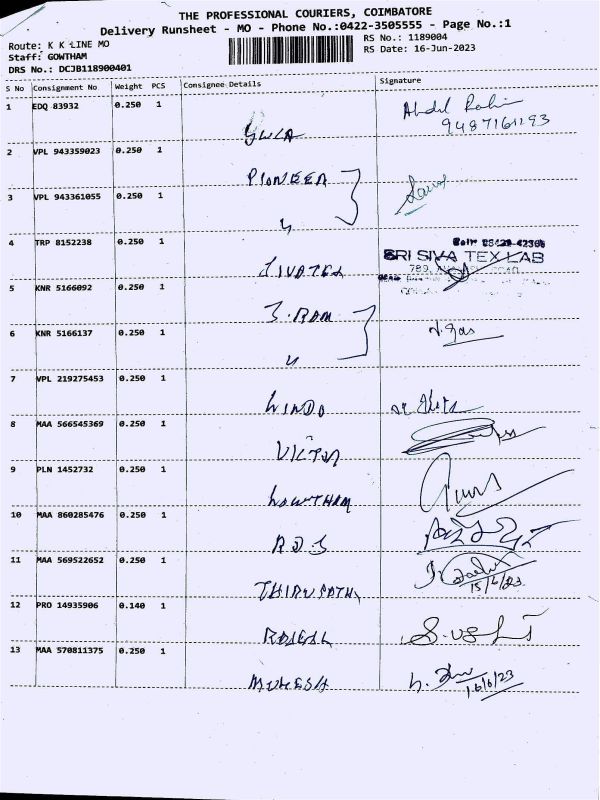 THE PROFESSIONAL COURIERS, COIMBATORE
Delivery Runsheet - MO - Phone No.:0422-3505555 - Page No.:1
Route: K K LINE MO
RS No.: 1189004
Staff: GOWTHAM
RS Date: 16-Jun-2023
DRS No.: DCJB118900401
S No Consignment No Weight PCS Consignee Details Signature
1 EDQ 83932 0.250 1
Abdul Rahim
9487161193
2 VPL 943359023 0.250 1
PIONEER
3 VPL 943361055 0.250 1
"
4 TRP 8152238 0.250 1
SRI SIVA TEX LAB
5 KNR 5166092 0.250 1
J. RAM
6 KNR 5166137 0.250 1
"
7 VPL 219275453 0.250 1
8 MAA 566545369 0.250 1
VICTOR
9 PLN 1452732 0.250 1
GOWTHAM
10 MAA 860285476 0.250 1
11 MAA 569522652 0.250 1
15/6/23
12 PRO 14935906 0.140 1
13 MAA 570811375 0.250 1
MUKESH
16/6/23